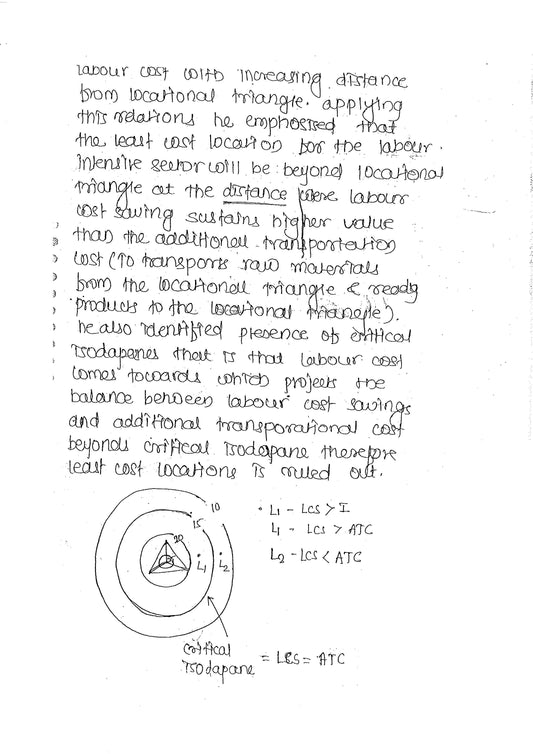 labour cost with increasing distance
from locational triangle. applying
this relations he emphosised that
the least cost location for the labour.
intensive sector will be beyond locational
triangle at the distance where labour
cost saving sustains higher value
than the additional transportation
cost (To transports raw materials
from the locational triangle & ready
products to the locational triangle).
he also identified presence of critical
isodapanes that is that labour cost
comes towards which projects the
balance between labour cost savings
and additional transporational cost
beyonds critical isodapane therefore
least cost locations is ruled out.
10
15
20
L1 L2
• L1 - LCS > I
L1 - LCS > ATC
L2 - LCS < ATC
critical
isodapane = LCS = ATC